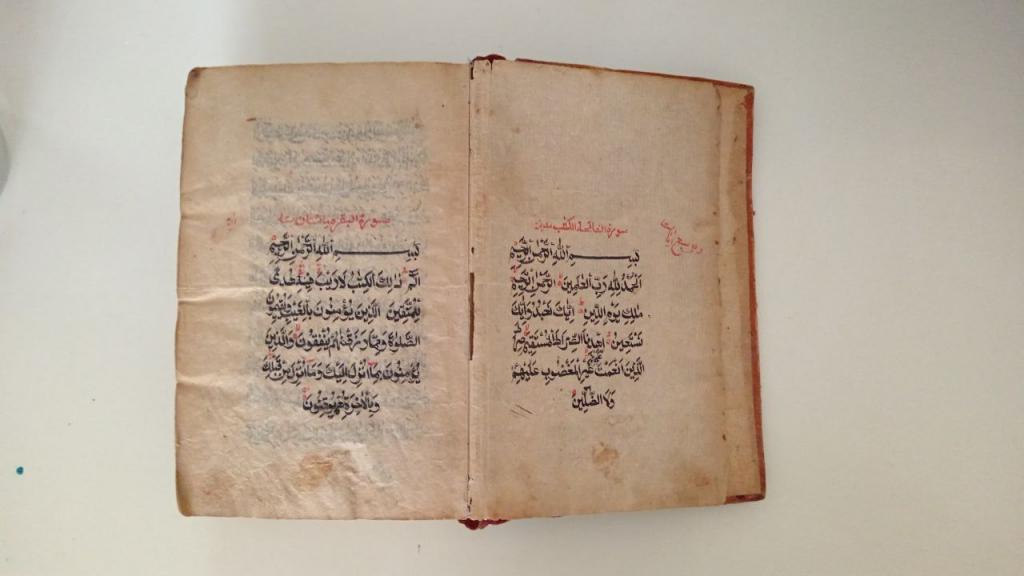 سورة الفاتحة الكتب
بسم الله الرحمن الرحيم
الحمد لله رب العلمين الرحمن الرحيم
ملك يوم الدين اياك نعبد واياك
نستعين اهدنا الصراط المستقيم صراط
الذين انعمت عليهم غير المغضوب عليهم
ولا الضالين
سورة البقرة مائتان
بسم الله الرحمن الرحيم
الم ذلك الكتب لا ريب فيه هدى
للمتقين الذين يؤمنون بالغيب ويقيمون
الصلوة ومما رزقناهم ينفقون والذين
يؤمنون بما انزل اليك وما انزل من قبلك
وبالاخرة هم يوقنون